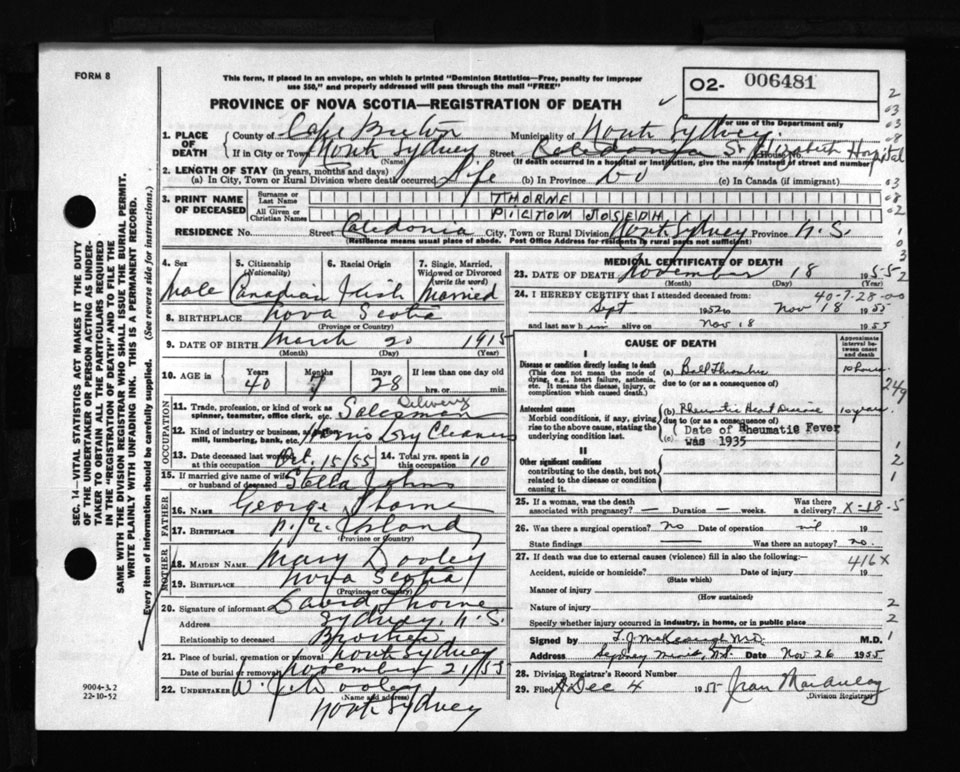 FORM 8
This form, if placed in an envelope, on which is printed "Dominion Statistics—Free, penalty for improper
use $50," and properly addressed will pass through the mail "FREE"
PROVINCE OF NOVA SCOTIA—REGISTRATION OF DEATH
02- 006481
For use of the Department only
SEC. 14—VITAL STATISTICS ACT MAKES IT THE DUTY
OF THE UNDERTAKER OR PERSON ACTING AS UNDER-
TAKER TO OBTAIN ALL THE PARTICULARS REQUIRED
IN THE "REGISTRATION OF DEATH" AND TO FILE THE
SAME WITH THE DIVISION REGISTRAR WHO SHALL ISSUE THE BURIAL PERMIT.
WRITE PLAINLY WITH UNFADING INK. THIS IS A PERMANENT RECORD.
Every item of information should be carefully supplied. (See reverse side for instructions.)
1. PLACE OF DEATH County of Cape Breton Municipality of North Sydney
If in City or Town North Sydney (Name) Street Caledonia St. Elizabeth Hospital House No.
(If death occurred in a hospital or institution, give the name instead of street and number)
2. LENGTH OF STAY (in years, months and days)
(a) In City, Town or Rural Division where death occurred Life (b) In Province Do (c) In Canada (if immigrant)
3. PRINT NAME OF DECEASED Surname or Last Name THORNE
All Given or Christian Names JOSEPH
RESIDENCE No. Street Caledonia City, Town or Rural Division North Sydney Province N.S.
(Residence means usual place of abode. Post Office Address for residents in rural parts not sufficient)
4. Sex Male
5. Citizenship (Nationality) Canadian
6. Racial Origin Irish
7. Single, Married, Widowed or Divorced (write the word) Married
8. BIRTHPLACE Nova Scotia
(Province or Country)
9. DATE OF BIRTH March 20 1915
(Month) (Day) (Year)
10. AGE in Years 40 Months 7 Days 28 If less than one day old hrs. or min.
OCCUPATION
11. Trade, profession, or kind of work as spinner, teamster, office clerk, etc. Delivery Salesman
12. Kind of industry or business, as mill, lumbering, bank, etc. Dry Cleaners
13. Date deceased last worked at this occupation Oct. 15/55 14. Total yrs. spent in this occupation 10
15. If married give name of wife or husband of deceased Stella Johns
FATHER
16. Name George Thorne
17. Birthplace P. E. Island
(Province or Country)
MOTHER
18. Maiden Name Mary Dooley
19. Birthplace Nova Scotia
(Province or Country)
20. Signature of informant David Thorne
Address Sydney, N.S.
Relationship to deceased Brother
21. Place of burial, cremation or removal North Sydney
Date of burial or removal November 21/55
22. Undertaker W. J. Dooley
(Name and address)
North Sydney
9004-3.2
22-10-52
MEDICAL CERTIFICATE OF DEATH
23. DATE OF DEATH November 18 1955
(Month) (Day)
40-7-28-00
24. I HEREBY CERTIFY that I attended deceased from:
Sept 1952 to Nov 18 1955
and last saw him alive on Nov 18 1955
CAUSE OF DEATH
Approximate interval between onset and death
I
Disease or condition directly leading to death
(This does not mean the mode of dying, e.g., heart failure, asthenia, etc. It means the disease, injury, or complication which caused death.)
(a) 10 hours
due to (or as a consequence of)
Antecedent causes
Morbid conditions, if any, giving rise to the above cause, stating the underlying condition last.
(b) Rheumatic Heart Disease
due to (or as a consequence of)
(c) Date of Rheumatic Fever
was 1935
II
Other significant conditions
contributing to the death, but not related to the disease or condition causing it.
25. If a woman, was the death associated with pregnancy? — Duration — weeks. Was there a delivery? X-18-5
26. Was there a surgical operation? no Date of operation nil 19
State findings — Was there an autopsy? no.
27. If death was due to external causes (violence) fill in also the following:— 416X
Accident, suicide or homicide? Date of injury 19
(State which)
Manner of injury
(How sustained)
Nature of injury
Specify whether injury occurred in industry, in home, or in public place
Signed by M.D.
Address Sydney Mines, N.S. Date Nov 26 1955
28. Division Registrar's Record Number
29. Filed Dec 4 1955 Jean MacAulay
(Division Registrar)